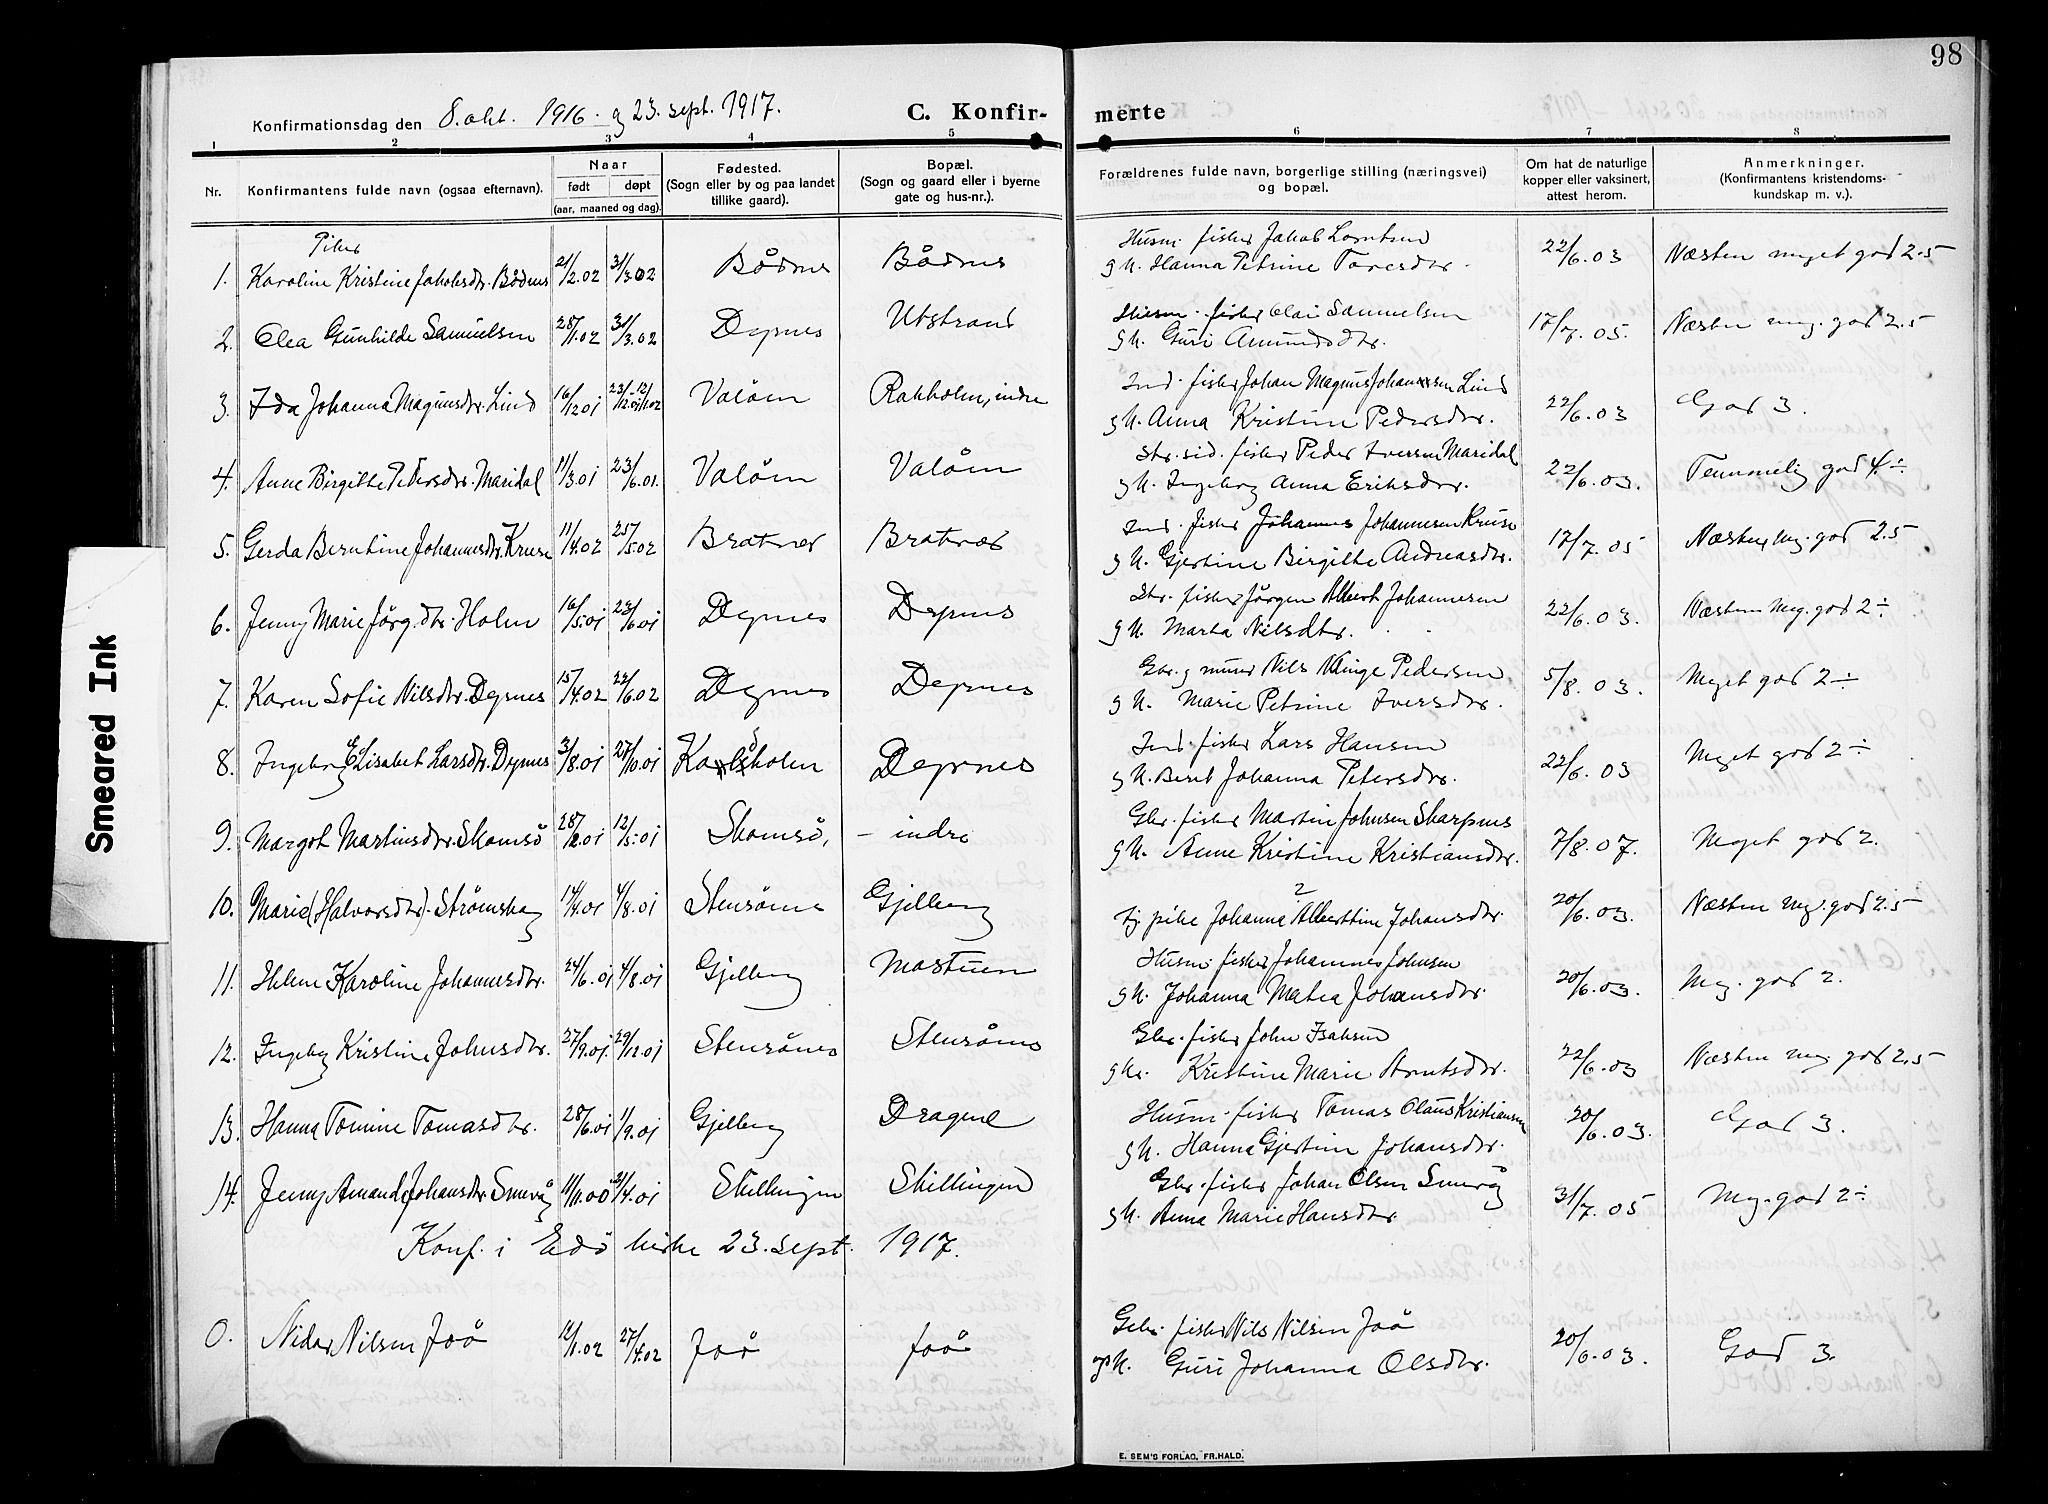 98
Konfirmationsdag den 8. okt. 1916 - og 23. sept. 1917.
C. Konfir-
merte
1 2 3 4 5 6 7 8
Nr.
Konfirmantens fulde navn (ogsaa efternavn).
Naar
født
døpt
(aar, maaned og dag).
Fødested.
(Sogn eller by og paa landet
tillike gaard).
Bopæl.
(Sogn og gaard eller i byerne
gate og hus-nr.).
Forældrenes fulde navn, borgerlige stilling (næringsvei)
og bopæl.
Om hat de naturlige
kopper eller vaksinert,
attest herom.
Anmerkninger.
(Konfirmantens kristendoms-
kundskap m. v.).
Piker
Husm. fisker Jakob Lorntsen
1. Karoline Kristine Jakobsdtr. Bödnes 21/2.02 31/3.02 Bådnes Bådnes g H. Hanna Petrine Toresdtr. 22/6.03 Næsten meget god 2.5
Husm. fisker Olai Samuelsen
2. Olea Gunhilde Samuelsen 28/1.02 31/3.02 Dyrnes Utstrand g H. Guri Amundsdtr. 17/7.05. Næsten meg. god 2.5
Ind. fisker Johan Magnus Johannesen Lind
3. Ida Johanna Magnusdtr. Lind 16/12.01 23/12.01-12/1.02 Valöen Rakholm, indre g H. Anna Kristine Pedersdtr. 22/6.03 God 3.
Str. sid. fisker Peder Iversen Maridal
4. Anne Birgitte Pedersdtr. Maridal 11/3.01 23/6.01. Valöen Valöen g H. Ingeborg Anna Eriksdtr. 22/6.03. Temmelig god 4÷
Ind. fisker Johannes Johannesen Kruse
5. Gerda Berntine Johannesdtr. Kruse 11/4.02 25/5.02 Bratnes Bratnes g H. Gjertine Birgitte Andreasdtr. 17/7.05 Næsten mg. god 2.5
Str. fisker Jörgen Albert Johannesen
6. Jenny Marie Jörg.dtr. Holm 16/5.01 23/6.01 Dyrnes Dyrnes g H. Marta Nilsdtr. 22/6.03. Næsten meg. god 2÷
Gbr. g murer Nils Vinge Pedersen
7. Karen Sofie Nilsdtr. Dyrnes 15/4.02 22/6.02 Dyrnes Dyrnes g H. Marie Petrine Iversdtr. 5/8.03. Meget god 2÷
Ind. fisker Lars Hansen
8. Ingeborg Elisabet Larsdtr. Dyrnes 3/8.01 27/10.01 Dyrnes g H. Beret Johanna Petersdtr. 22/6.03 Meget god 2÷
Gbr. fisker Martin Johnsen Skarpnes
9. Margot Martinsdtr. Skomsö 28/2.01 12/5.01 Skomsö, - indre g H. Anne Kristine Kristiansdtr. 7/8.07. Meget god 2.
10. Marie (Halvorsdtr.) Strömskag 14/4.01 4/8.01 Stensönes Gjelberg tj. pike Johanna Alberttine Johansdtr. 20/6.03. Næsten mg. god 2.5
Husm. fisker Johannes Johnsen
11. Helene Karoline Johannesdtr. 24/6.01 4/8.01 Gjelberg Mostuen g H. Johanna Matea Johansdtr. 20/6.03. Mg. god 2.
Gbr. fisker John Isaksen
12. Ingeborg Kristine Johnsdtr. 27/9.01 29/12.01 Stensönes Stensönes g H. Kristine Marie Arntsdtr. 22/6.03 Næsten mg god 2.5
Husm. fisker Tomas Olaus Kristiansen
13. Hanna Tomine Tomasdtr. 28/6.01 1/9.01 Gjelberg Dragnel g H. Hanna Gjertine Johansdtr. 20/6.03. God 3.
Gbr. fisker Johan Olsen Smevåg
14. Jenny Amanda Johansdtr. Smevåg 11/11.00 21/4.01 Skillingen Skillingen g H. Anna Marie Hansdtr 31/7.05 Mg. god 2÷
Konf. i Edö kirke 23. sept. 1917.
Gbr. fisker Nils Nilsen Joö
0. Nidar Nilsen Joö 12/1.02 27/4.02 Joö Joö og H. Guri Johanna Olsdtr. 20/6.03. God 3.
E. SEM'S FORLAG, FR.HALD.
Smeared Ink